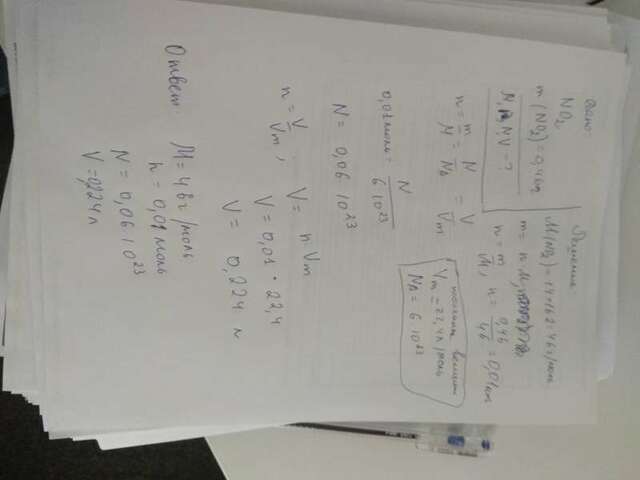 Дано:
NO₂
m(NO₂)=0,46г
N, M, n, V – ?
Решение:
M(NO₂)=14+16·2=46г/моль
m = n M,
n = m/M, n = 0,46/46 = 0,01моль
n = m/M = N/Nₐ = V/Vm
постоянные величины
Vm=22,4л/моль
Nₐ = 6·10²³
0,01моль = N/6·10²³
N = 0,06·10²³
n = V/Vm; V = n Vm
V = 0,01 · 22,4
V = 0,224 л
Ответ: M=46г/моль
n = 0,01моль
N = 0,06·10²³
V = 0,224л